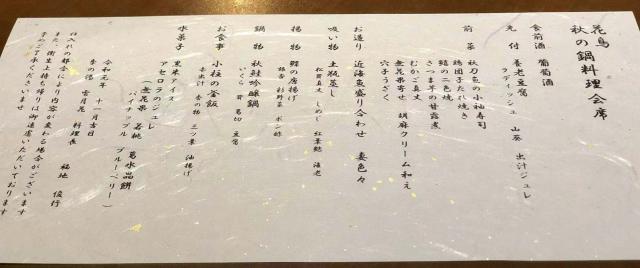 花鳥
秋の鍋料理会席
食前酒 葡萄酒
先付 養老豆腐 山葵 出汁ジュレ
ラディッシュ
前菜 秋刀魚の小袖寿司
鶏団子たれ焼き
鮭の二色焼
さつま芋の甘露煮
むかご真丈
無花果寄せ 胡麻クリーム和え
穴子うざく
お造り 近海魚盛り合わせ 妻色々
吸い物 土瓶蒸し
松茸真丈 しめじ 紅葉麩 海老
揚物 鰈の唐揚げ
ポン酢
鍋物 秋鮭吟醸鍋
いくら 葛切 豆腐
お食事 小柱の釜飯
赤出汁 香の物 三つ葉 油揚げ
水菓子 黒米アイス
アセロラのジュレ 葛水晶餅
(無花果 若桃
パイナップル ブルーベリー)
令和元年 十一月吉日
季の湯 雪月花 料理長
福地 俊行
仕入れの都合により内容が変わる場合がございます
また、衛生上持ち帰りは御遠慮いただいております
予めご了承くださいませ